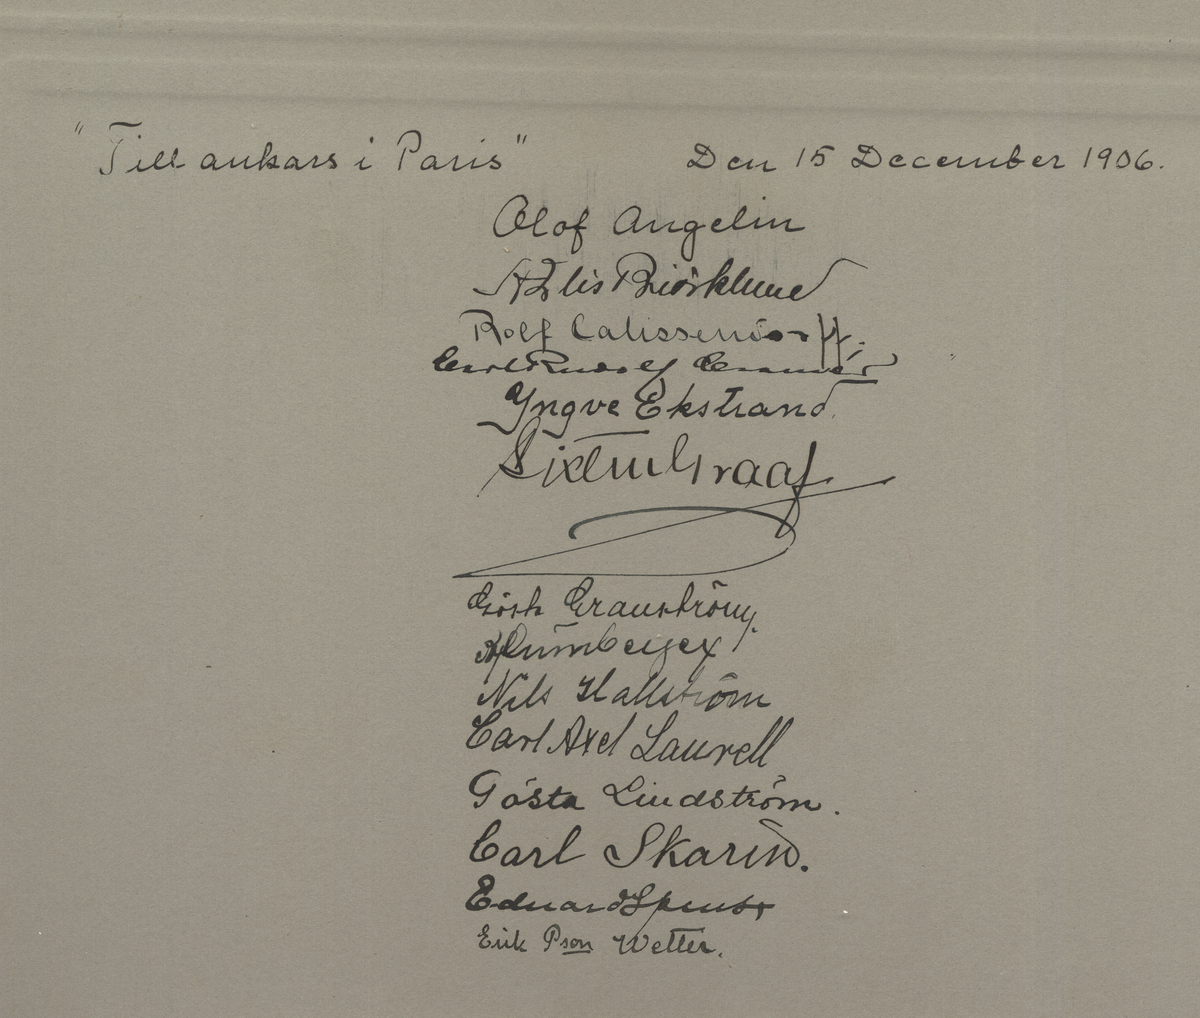 "Till ankars i Paris" Den 15 December 1906.
Olof Angelin
Björklund
Rolf Calissendorff.
Carl Rudolf Cramér
Yngve Ekstrand.
Sixten Graaf
Gösta Granström
Nils Hallström
Carl Axel Laurell
Gösta Lindström.
Carl Skarin.
Eduard Spens
Erik Pson Wetter.